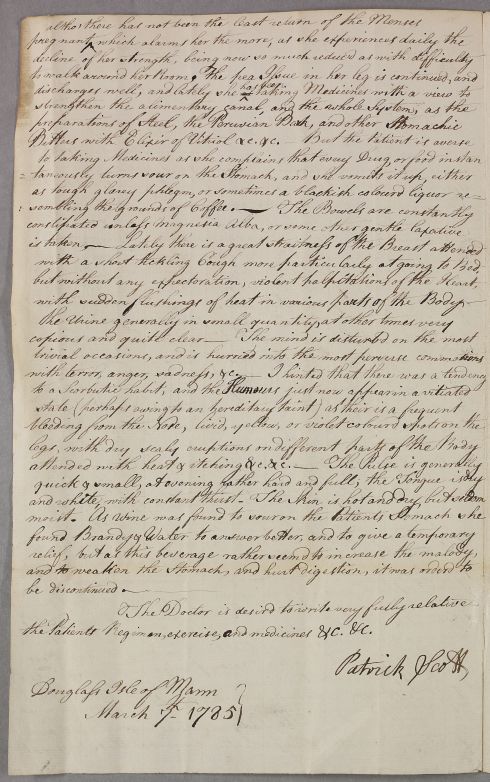 altho' there has not been the least return of the Menses
pregnant, which alarms her the more, as she experiences daily the
decline of her strength, being now so much reduc'd as with difficulty
to walk around her Room, The pea Issue in her leg is continued, and
discharges well, and lately she has been taking Medicines with a view to
strengthen the alimentary canal, and the whole System, as the
preparations of Steel, the Peruvian Bark, and other Stomachic
Bitters with Elixir of Vitriol &c. &c. — But the Patient is averse
to taking Medicines as she complains that every Drug or food instan
=taneously turns sour on the Stomach, and she vomits it up, either
as tough glarey phlegm, or sometimes a blackish colour'd liquor re=
:sembling the grounds of Coffee. — The Bowels are constantly
constipated unless Magnesia Alba, or some other gentle laxative
is taken. — Lately there is a great straitness of the Breast attended
with a short tickling Cough more particularly at going to Bed,
but without any expectoration, violent palpitations of the Heart,
with sudden flushings of heat in various parts of the Body,
The Urine generally in small quantity, at other times very
copious and quite clear — The mind is disturbed on the most
trivial occasions, and is hurried into the most perverse commotions
with terror, anger, sadness, &c. — I hinted that there was a tendency
to a Scorbutic habit, and the Humours just now appear in a vitiated
state (perhaps owing to an hereditary taint) as their is a frequent
bleeding from the Nose, livid, yellow, or violet colour'd spots on the
legs, with dry scaly eruptions on different parts of the Body
attended with heat & itching &c. &c. — The Pulse is generally
quick & small, at evening rather hard and full, the Tongue is dry
and white, with constant thirst. The Skin is hot and dry, but seldom
moist. As Wine was found to sour on the Patients Stomach she
found Brandy & Water to answer better, and to give a temporary
relief, but as this beverage rather seem'd to increase the malady,
and to weaken the Stomach, and hurt digestion, it was order'd to
be discontinued. —
The Doctor is desir'd to write very fully relative
the Patients Regimen, exercise, and medicines &c. &c.
Patrick Scott
Douglass Isle of Mann
March 7th 1785